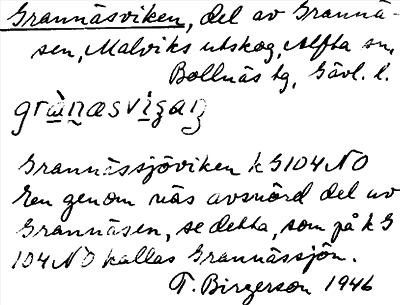 Grannäsviken, del av Grannä-
sen, Malviks utskog, Alfta sn,
Bollnäs tg, Gävl. l.
grànæsviȝaṇ
Grannässjöviken k G104 NO
En genom näs avsnörd del av
Grannäsen, se detta, som på k G
104 NO kallas Grannässjön.
T. Birgerson 1946